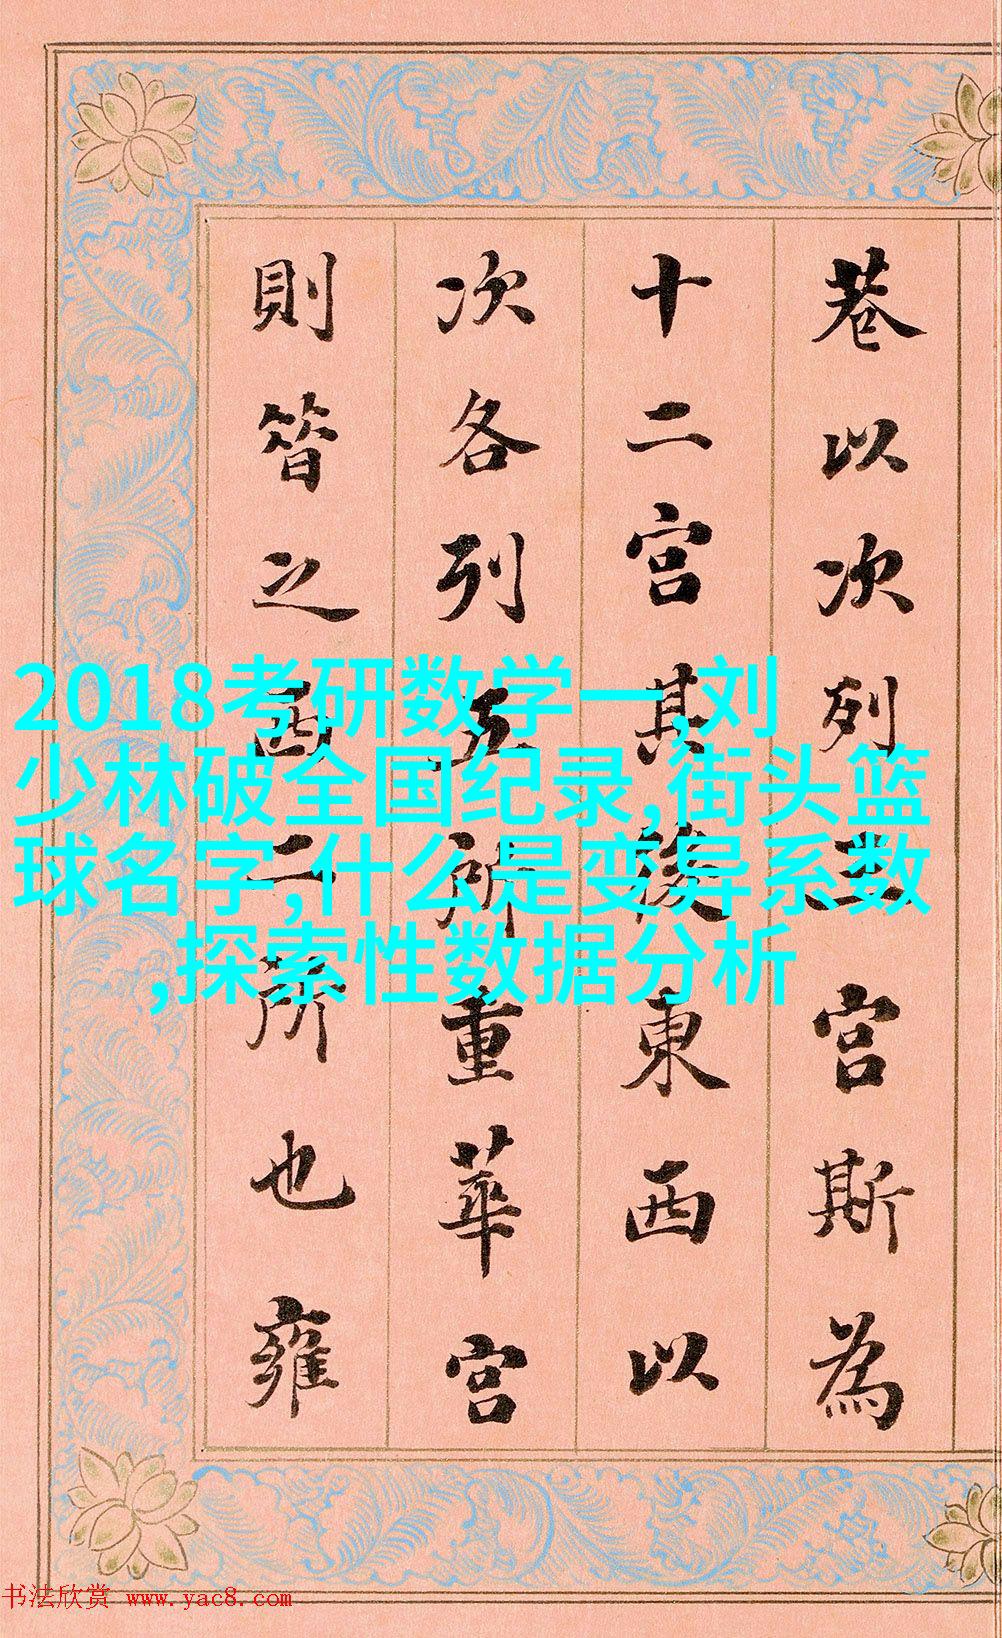 巷以次列三宫斯為
十二宫其後東西以
次各列五所重華宫
則昝之西二所也雍
2018考研数学一,刘
少林破全国纪录,街头篮
球名字,什么是变异系数
,探索性数据分析
书法欣赏 www.yac8.com